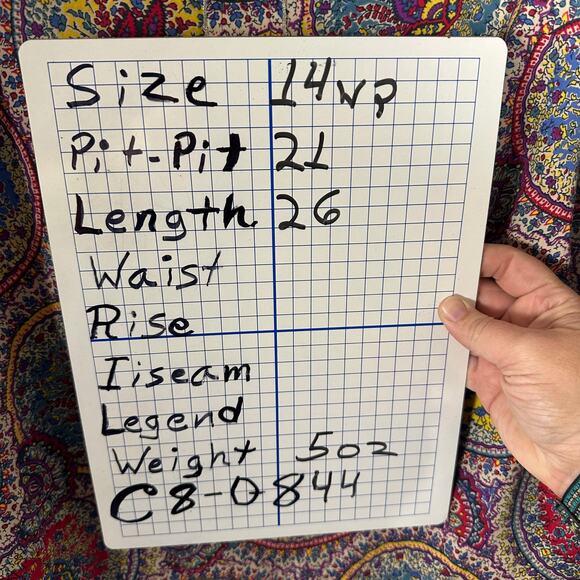 Size 14WP
Pit-Pit 21
Length 26
Waist
Rise
Iiseam
Legend
Weight 5oz
C8-0844